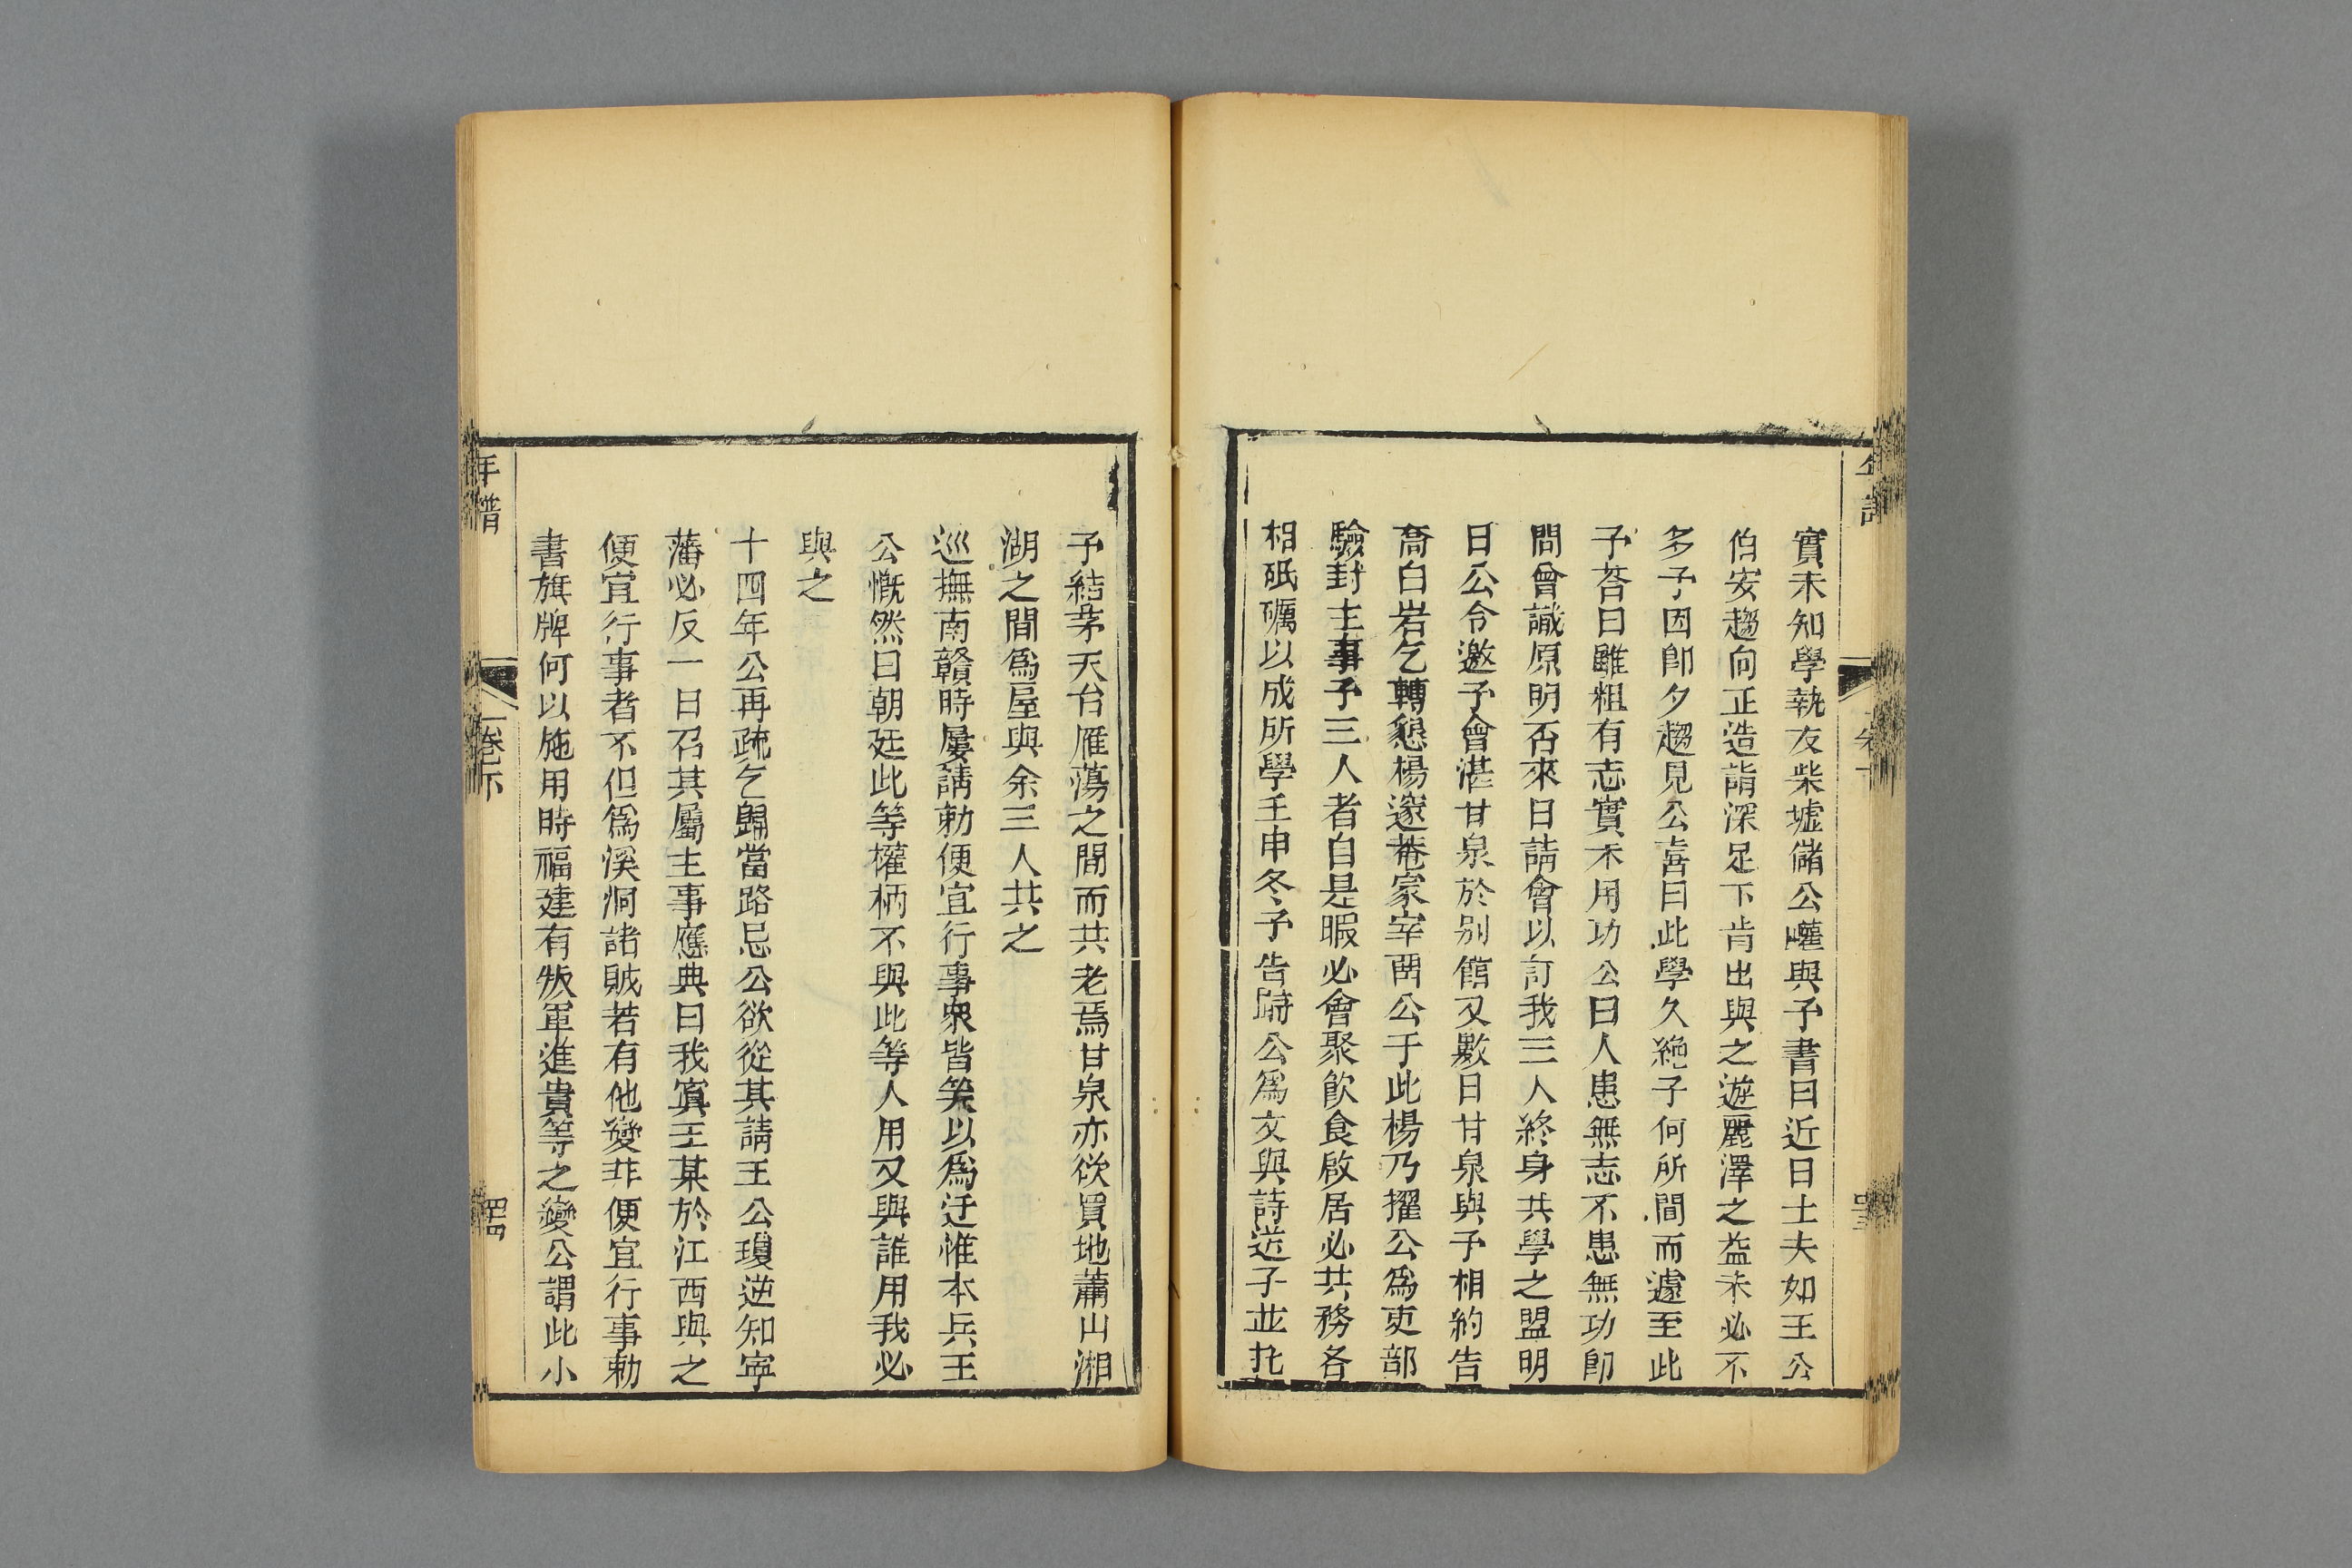 實未知學執友柴墟儲公巏與予書曰近日士夫如王公
伯安趨向正造詣深足下肯出與之遊麗澤之益未必不
多予因卽夕趨見公喜曰此學久絶子何所間而遽至此
予荅曰雖粗有志實未用功公曰人患無志不患無功卽
問曾識原明否來日請會以訂我三人終身共學之盟明
日公令邀予會湛甘泉於别館又數日甘泉與予相約告
喬白岩乞轉懇楊邃菴家宰畱公于此楊乃擢公爲吏部
驗封主事予三人者自是暇必會聚飮食啟居必共務各
相砥礪以成所學壬申冬予告歸公爲文與詩送子並托
年譜
卷下
予結茅天台雁蕩之間而共老焉甘泉亦欲買地蕭山湘
湖之間爲屋與余三人共之
巡撫南贛時屢請勅便宜行事衆皆笑以爲迂惟本兵王
公慨然曰朝廷此等權柄不與此等人用又與誰用我必
與之
十四年公再疏乞歸當路忌公欲從其請王公瓊逆知寧
藩必反一日召其屬主事應典曰我寘王某於江西與之
便宜行事者不但爲溪洞諸賊若有他變非便宜行事勅
書旗牌何以施用時福建有叛軍進貴等之變公謂此小
年譜
卷下
四十四